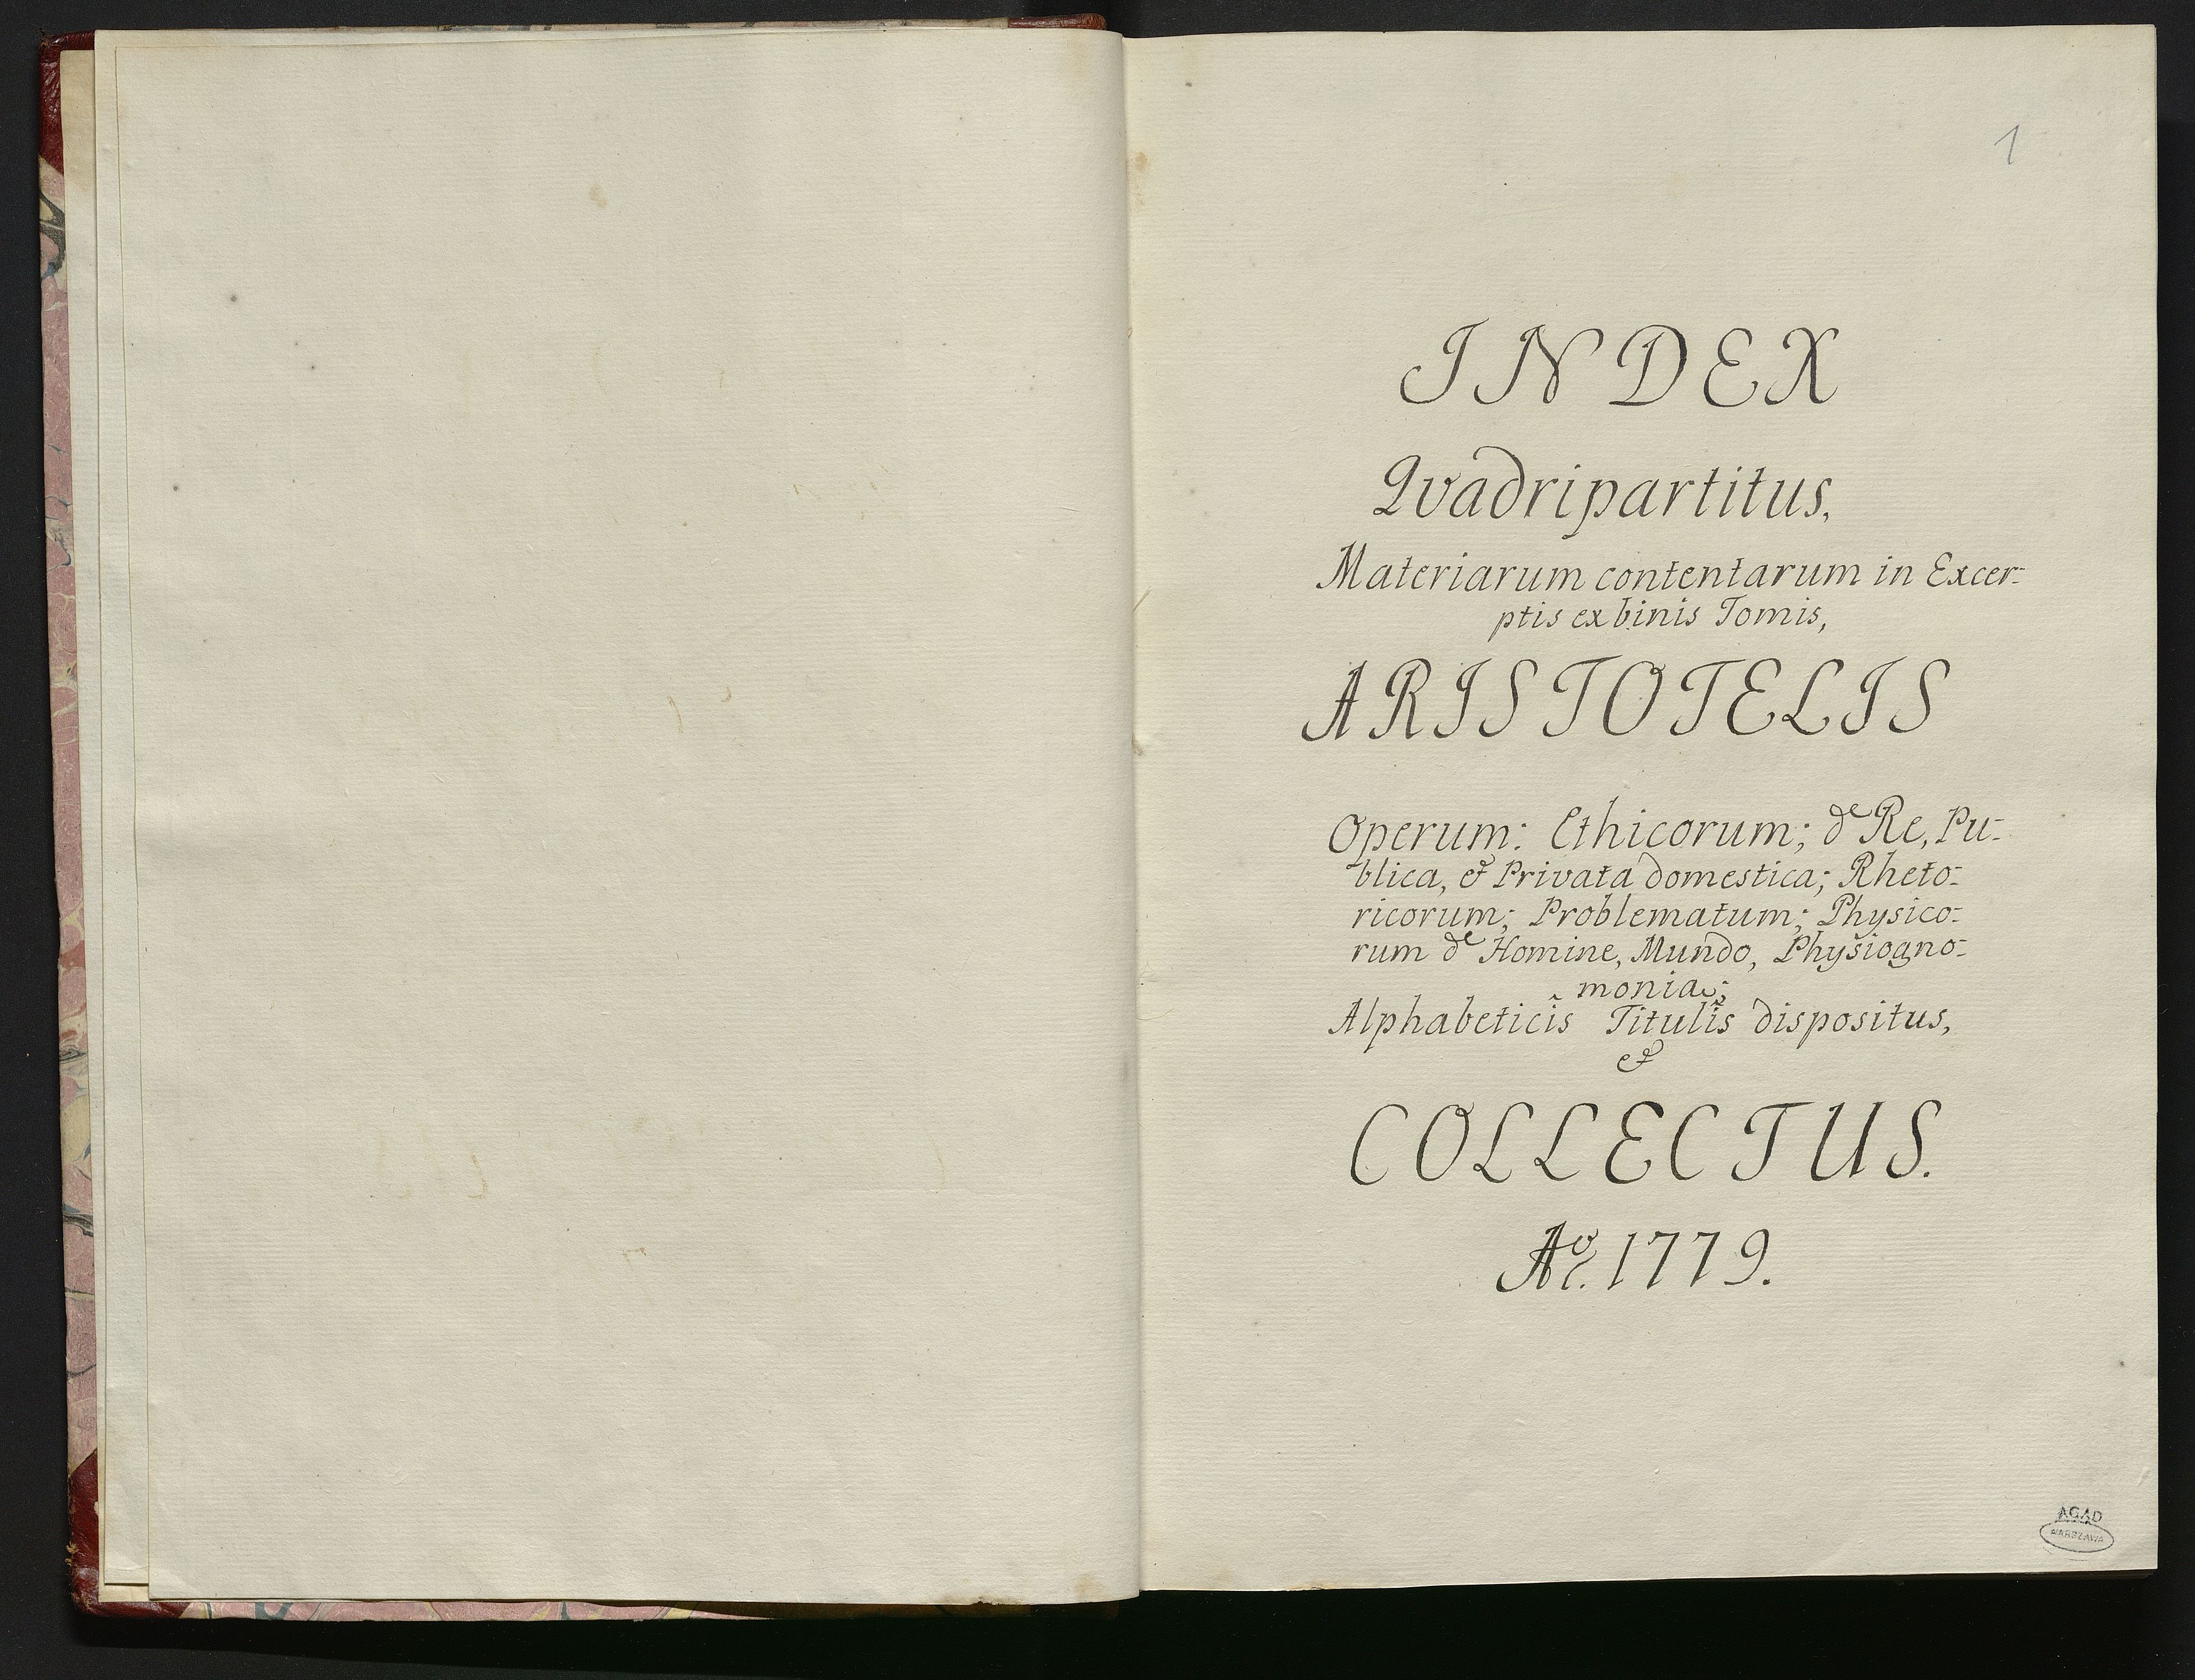 1
INDEX
Qvadripartitus,
Materiarum contentarum in Excer-
ptis ex binis Tomis,
ARISTOTELIS
Operum: Ethicorum; de Re, Pu-
blica, & Privata domestica; Rheto-
ricorum; Problematum; Physico-
rum de Homine, Mundo, Physiogno-
monia;
Alphabeticîs Titulîs dispositus,
&
COLLECTUS.
Aō. 1779.
AGAD
WARSZAWA